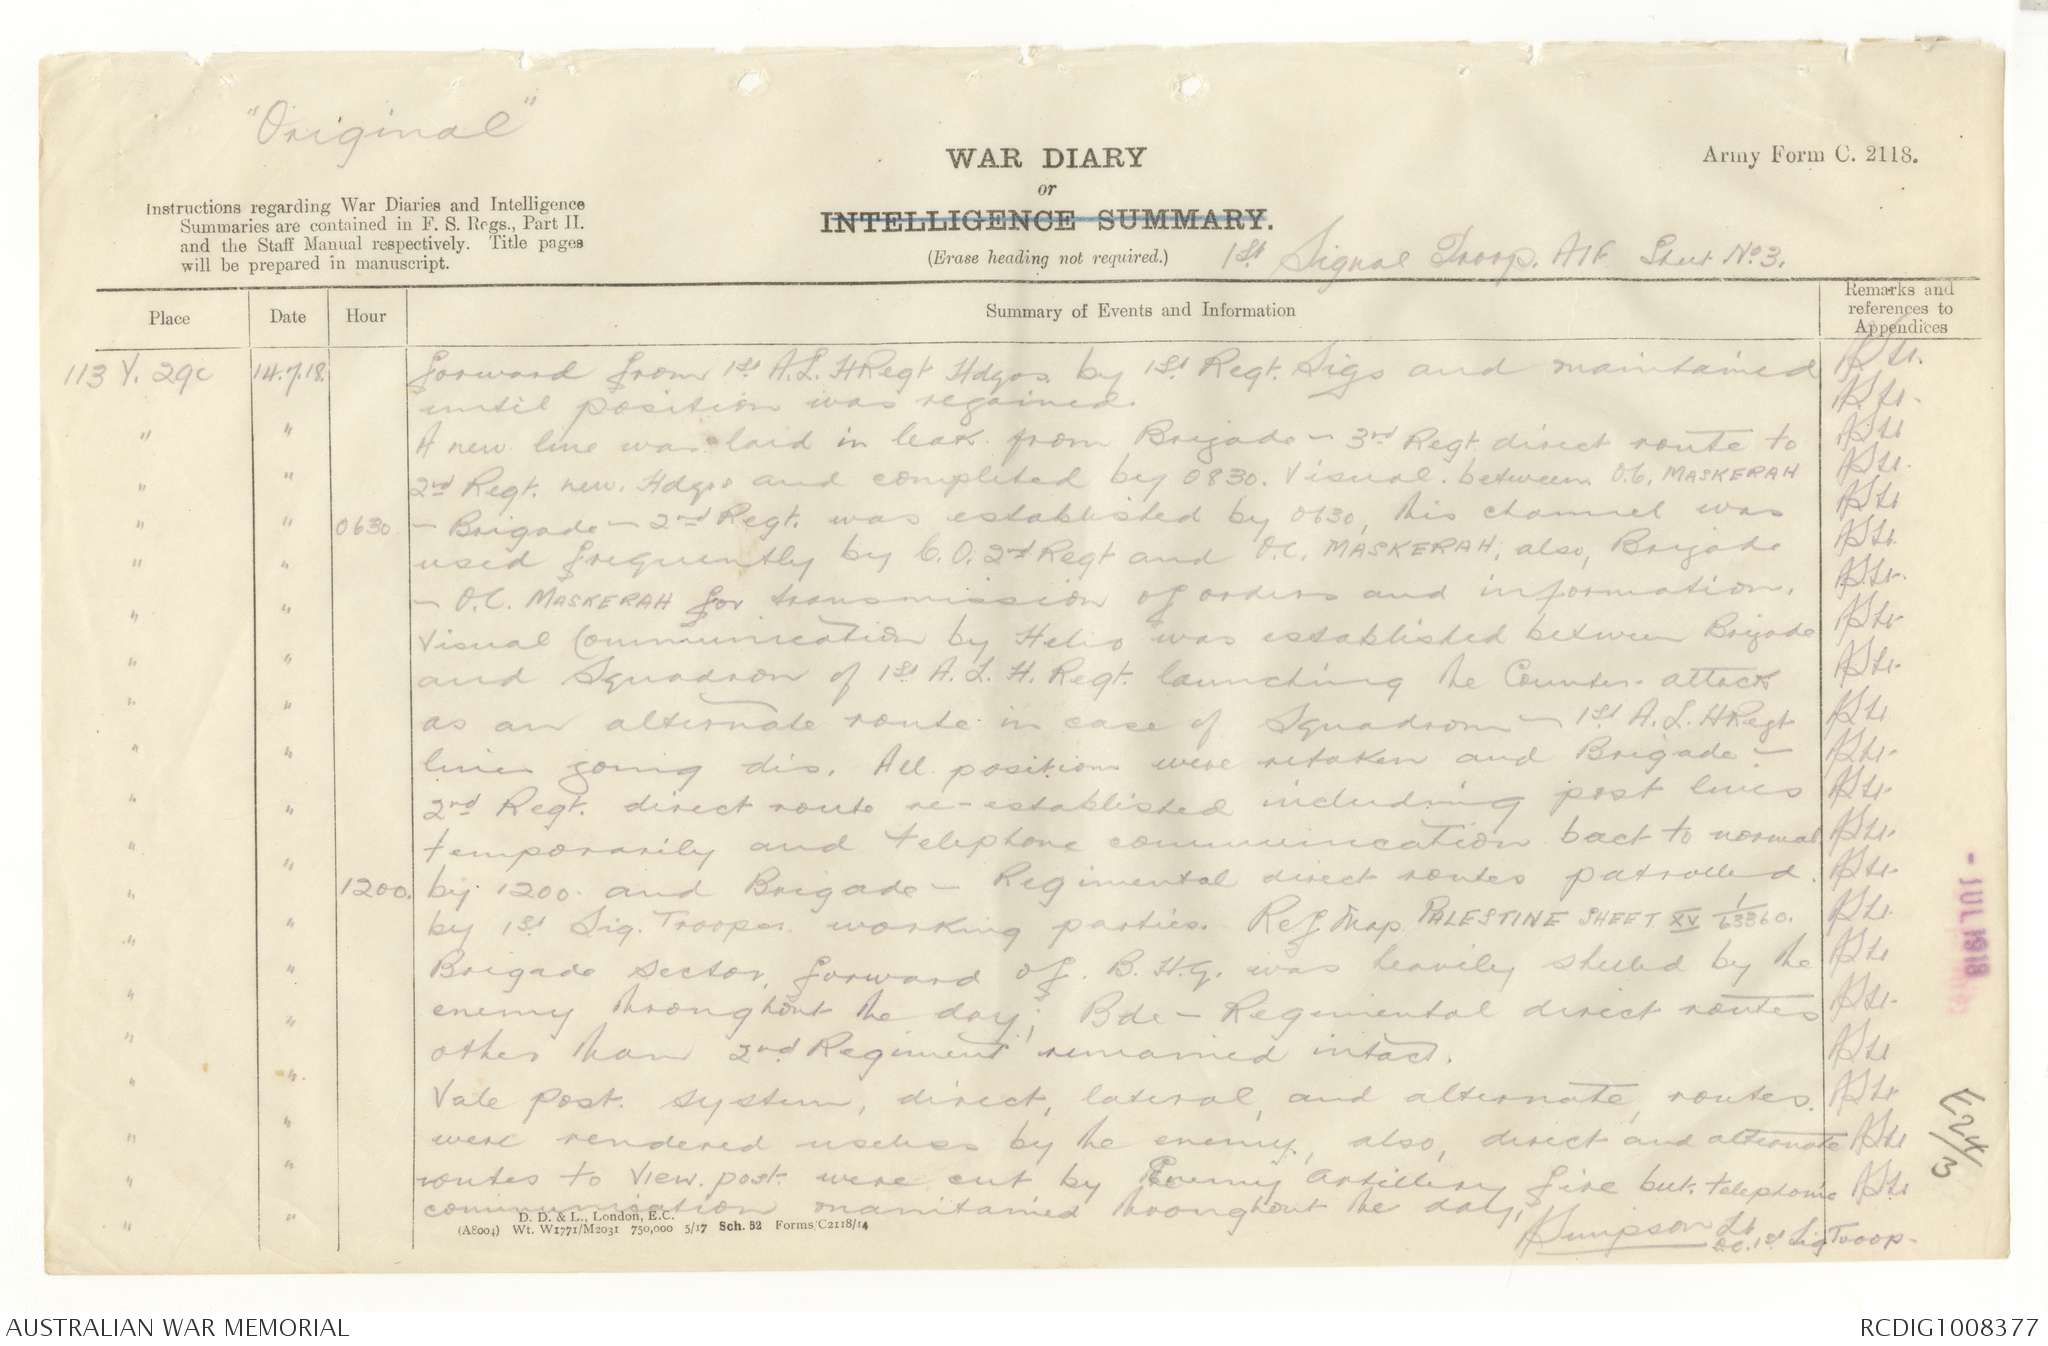 "Original"
WAR DIARY
or
INTELLIGENCE SUMMARY.
(Erase heading not required.)
Army Form C. 2118.
Instructions regarding War Diaries and Intelligence
Summaries are contained in F. S. Regs., Part II.
and the Staff Manual respectively. Title pages
will be prepared in manuscript.
1st Signal Troop. AIF. Sheet No 3.
Place Date Hour Summary of Events and Information Remarks and references to Appendices
113 Y. 29c 14.7.18. forward from 1st A.L.H Regt Hdqrs. by 1st Regt. Sigs and maintained
until position was regained.
" " A new line was laid in leak from Brigade - 3rd Regt. direct route to
" " 2nd Regt. new. Hdqrs and completed by 0830. Visual. between O.C. MASKERAH
" " 0630 - Brigade - 2nd Regt. was established by 0630, this channel was
" " used frequently by C.O. 2nd Regt and O.C. MASKERAH, also, Brigade
" " - O.C. MASKERAH for transmission of orders and information.
" " Visual Communication by Helio was established between Brigade
" " and Squadron of 1st A.L.H. Regt. launching the Counter-attack
" " as an alternate route in case of Squadron - 1st A.L.H Regt
" " lines going dis. All positions were retaken and Brigade -
" " 2nd Regt. direct route re-established including post lines
" " temporarily and telephone communication back to normal
" 1200. by 1200. and Brigade - Regimental direct routes patrolled.
" " by 1st Sig. Troopers working parties. Ref Map PALESTINE SHEET XV 1/63360.
" " Brigade sector, forward of B.H.Q. was heavily shelled by the
" " enemy throughout the day; Bde - Regimental direct routes
" " other than 2nd Regiment remained intact.
" " Vale post. system, direct, lateral, and alternate, routes.
" " were rendered useless by the enemy, also, direct and alternate
" " routes to View. post. were cut by Enemy artillery fire but. telephonic
" " communication maintained throughout the day.
Simpson Lt
O.C. 1st Sig Troop.
D. D. & L., London, E.C.
(A8004) Wt. W1771/M2031 750,000 5/17 Sch. 52 Forms/C2118/14
- JUL 1918
E24/3
AUSTRALIAN WAR MEMORIAL
RCDIG1008377